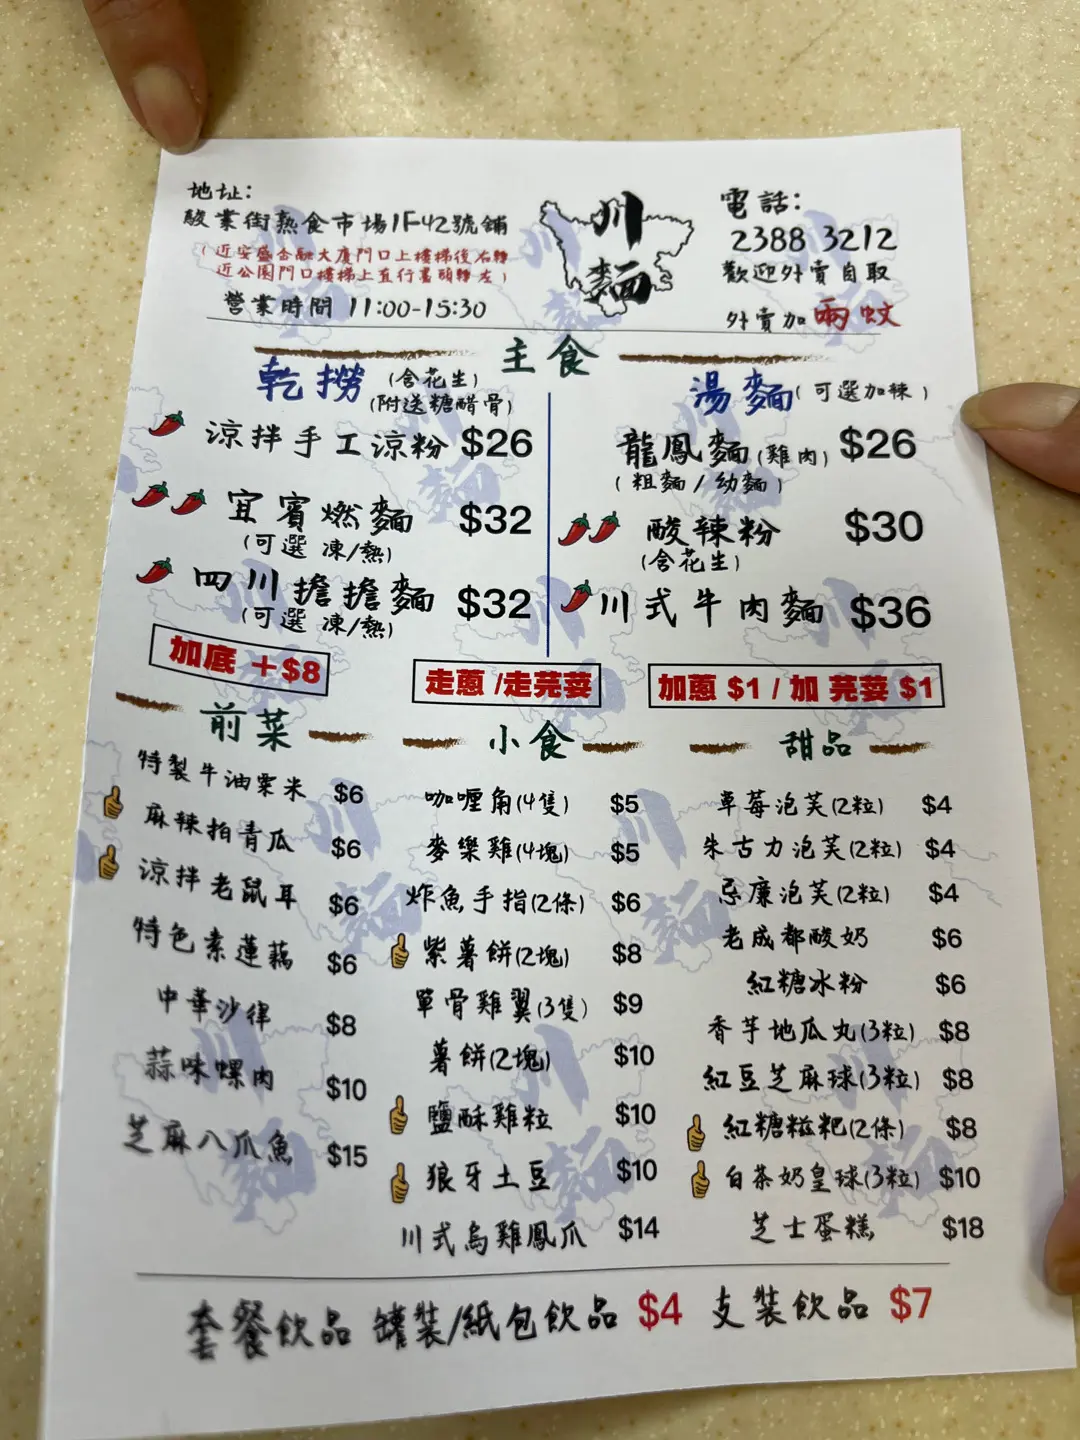 地址：
駿業街熟食市場1F42號鋪
(近安盛金融大廈門口上樓梯後右轉
近公園門口樓梯上直行盡頭轉左)
營業時間 11:00-15:30
川
麵
電話：
2388 3212
歡迎外賣自取
外賣加兩蚊
主食
乾撈(含花生)
(附送糖醋骨)
涼拌手工涼粉 $26
宜賓燃麵 $32
(可選 凍/熱)
四川擔擔麵 $32
(可選 凍/熱)
湯麵(可選加辣)
龍鳳麵(雞肉) $26
(粗麵/幼麵)
酸辣粉 $30
(含花生)
川式牛肉麵 $36
加底 +$8
走蔥 /走芫荽
加蔥 $1 / 加 芫荽 $1
前菜
特製牛油粟米 $6
麻辣拍青瓜 $6
涼拌老鼠耳 $6
特色素蓮藕 $6
中華沙律 $8
蒜味螺肉 $10
芝麻八爪魚 $15
小食
咖喱角(4隻) $5
麥樂雞(4塊) $5
炸魚手指(2條) $6
紫薯餅(2塊) $8
單骨雞翼(3隻) $9
薯餅(2塊) $10
鹽酥雞粒 $10
狼牙土豆 $10
川式烏雞鳳爪 $14
甜品
草莓泡芙(2粒) $4
朱古力泡芙(2粒) $4
忌廉泡芙(2粒) $4
老成都酸奶 $6
紅糖冰粉 $6
香芋地瓜丸(3粒) $8
紅豆芝麻球(3粒) $8
紅糖糍粑(2條) $8
白茶奶皇球(3粒) $10
芝士蛋糕 $18
套餐飲品 罐裝/紙包飲品 $4 支裝飲品 $7